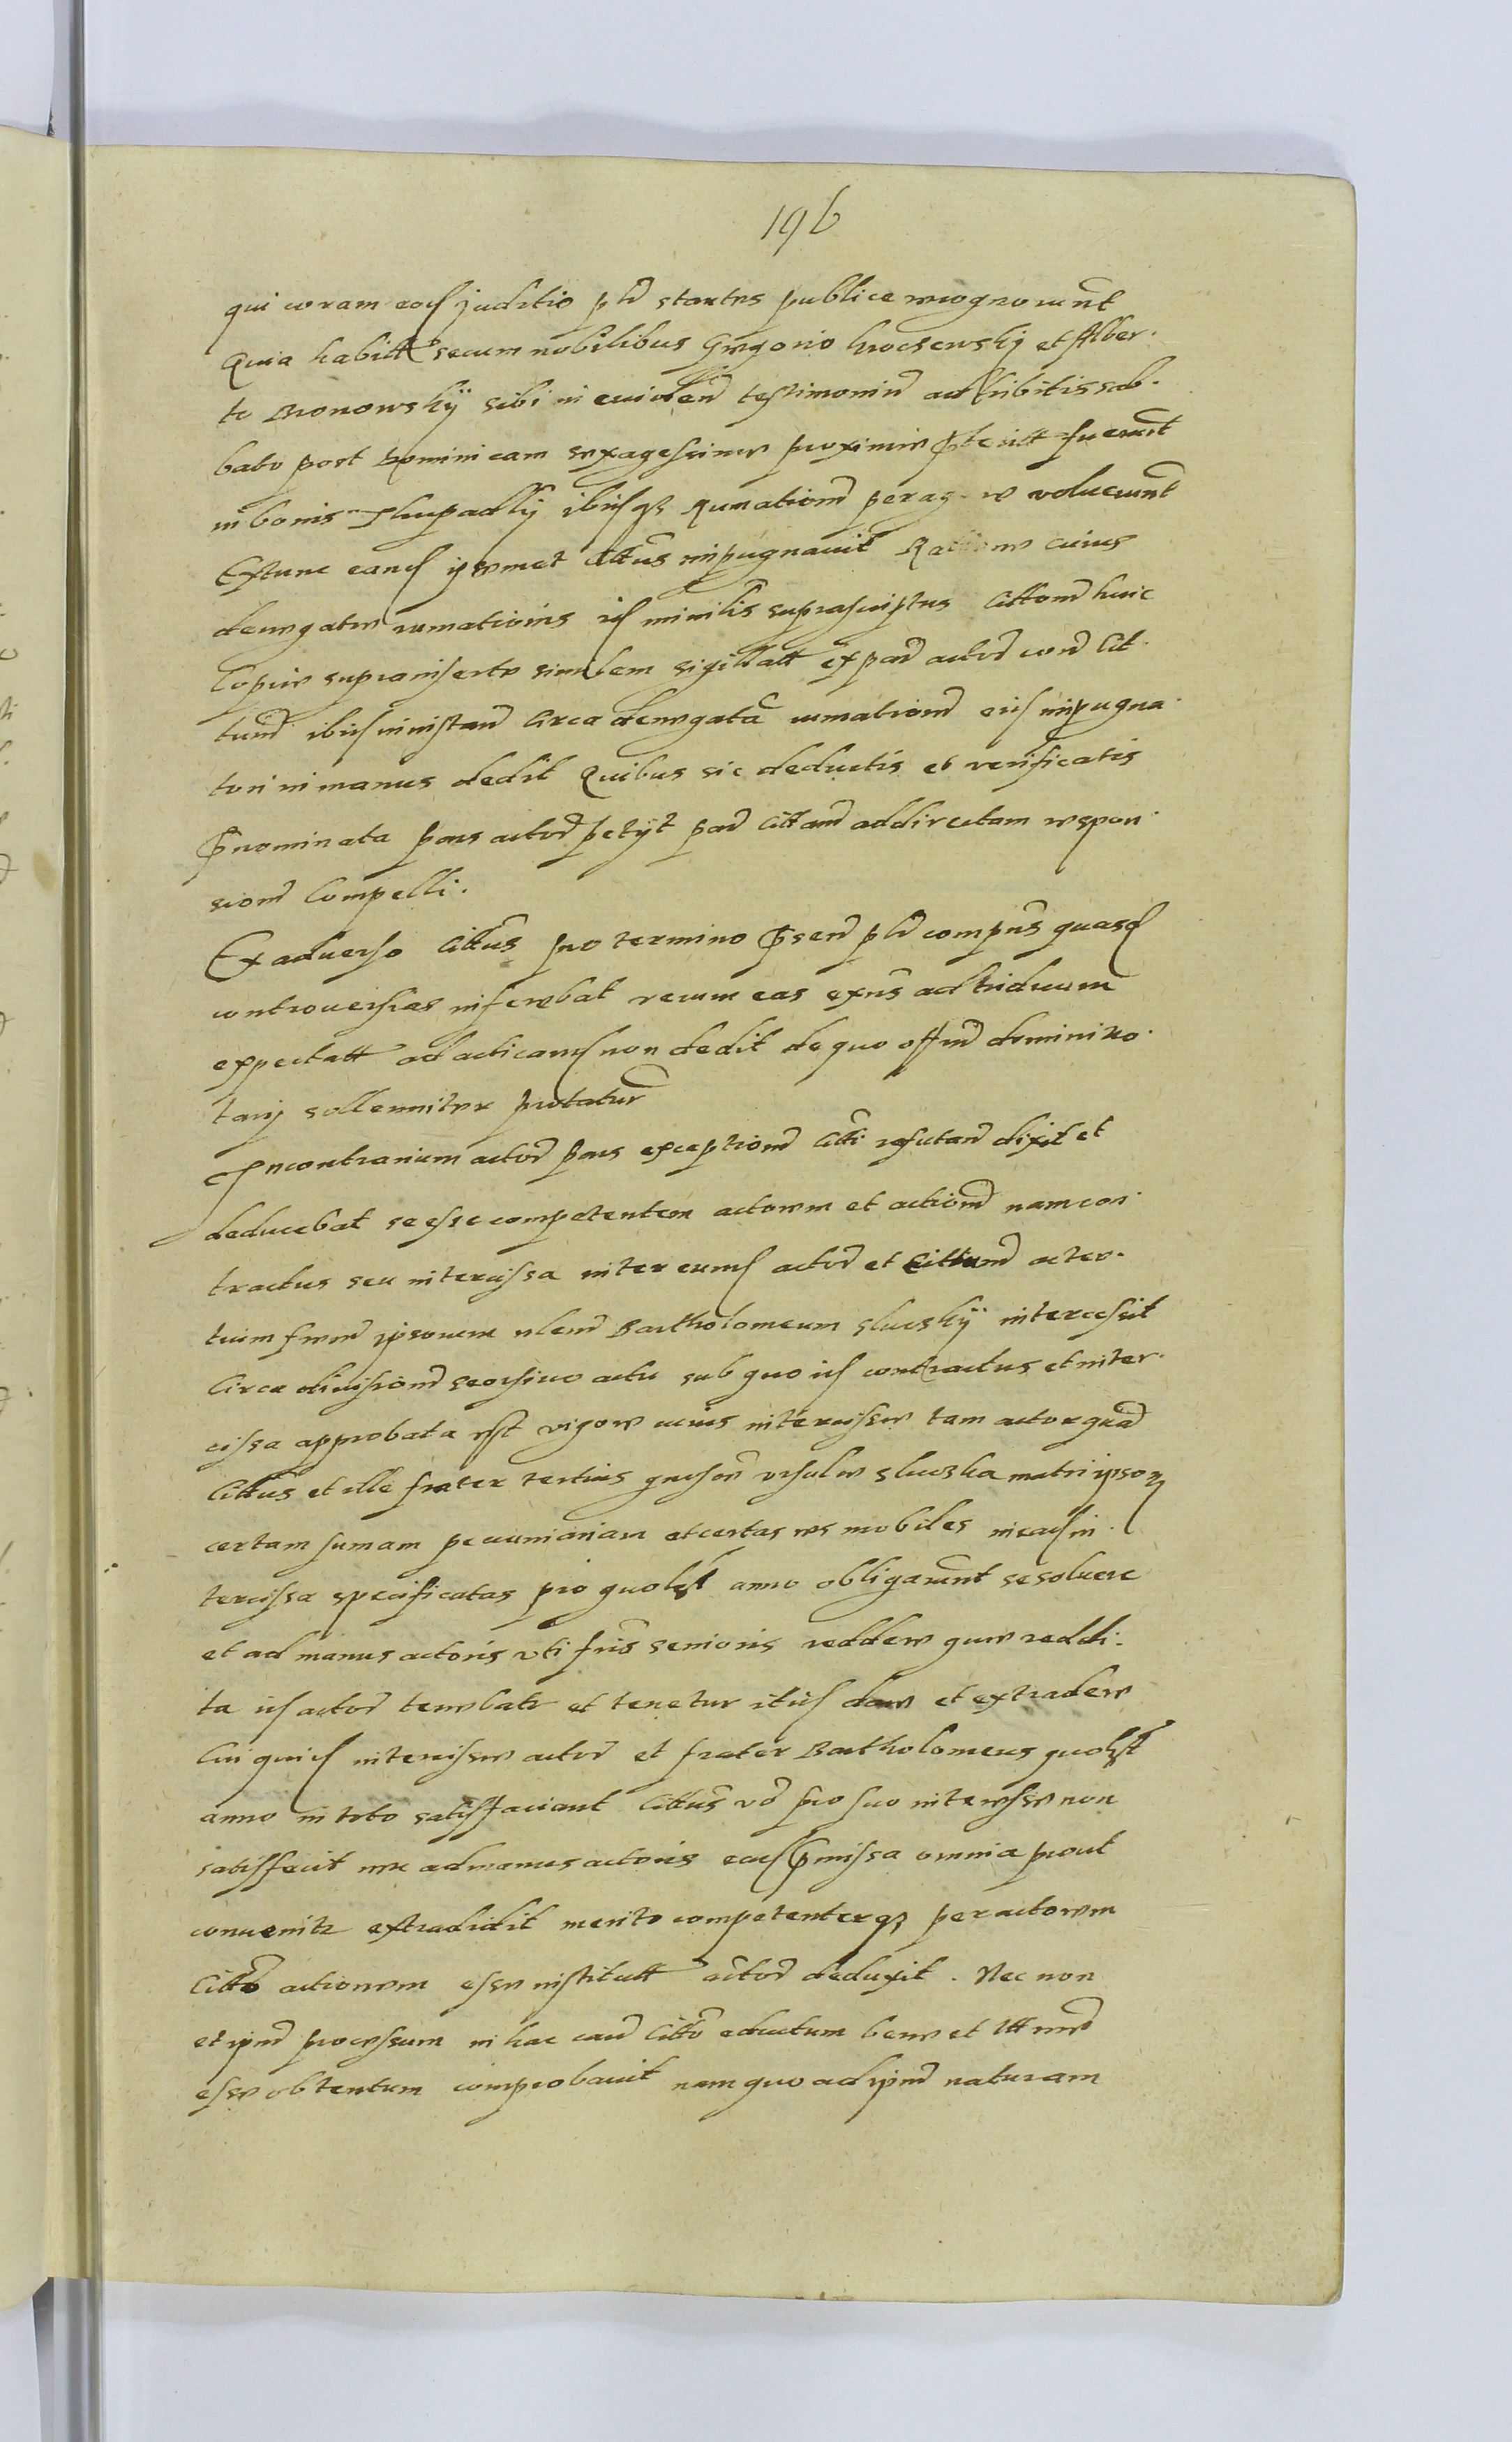 196
qui coram eod judicio pld stantes publice recognoverunt
Quia habitt secum nobilibus Gregorio et Alber-
to Bronowskij sibi in evidend testimonium adhibitis sab-
bato post Dominicam sexagesimae proximae pterit fuerunt
in bonis ibidq rumationem perag-re voluerunt
Extunc eand ipsemet cittus inpugnavit Ratione cuius
denegatae rumationis id minilis suprascriptus cittatiom huic
Copiae suprainsertae similem sigillatt ex pard actord cord cit-
tund ibid instand circa denegatã rumationem eid inpugna-
tori in manus dedit Quibus sic deductis et verificatis
Pnominata pars actord petijt pard cittand ad directam respon-
siond compelli.
Ex adverso cittus pro termino psend pld compns quasd
controversias inferebat verum eas exns ad triduum
expectatt ad acticand non dedit de quo offnd domini no-
tarij sollenniter protatur
In contrarium actord pars exceptiond citti refutand dixit et
deducebat se esse competentem actorem et actiond nam con-
tractus seu intercisa inter eund actord et cittund ac ter-
tium frem ipsorum olend Bartholomeum sluskij intercessit
Circa divisiond seorsivo actu sub quo id contractus et inter-
cisa approbata est vigore cuius intercisae tam actor quã
cittus et ille frater tertius gnsord ursulae sluska matri ipsor
certam sumam pecuniariam et certas res mobiles in ead in-
tercisa specificatas pro quolibet anno obligarunt se solvere
et ad manus actoris uti fris senioris reddere quae reddi-
ta id actord tenebatr et tenetur itid dare et extradere
Cui quid intercisae actord et frater Bartholomeus quolibet
anno in toto satisfaciant cittus vo pro suo interesse non
satisfecit nec ad manus actoris ead pmissa omnia prout
convenitr extradidit merito competenterq per actorem
citto actionem esse institutt actord deduxit. Nec non
et ipm processum in hac caud citto eductum bene et
esse obtentum comprobavit nam quo ad ipm naturam